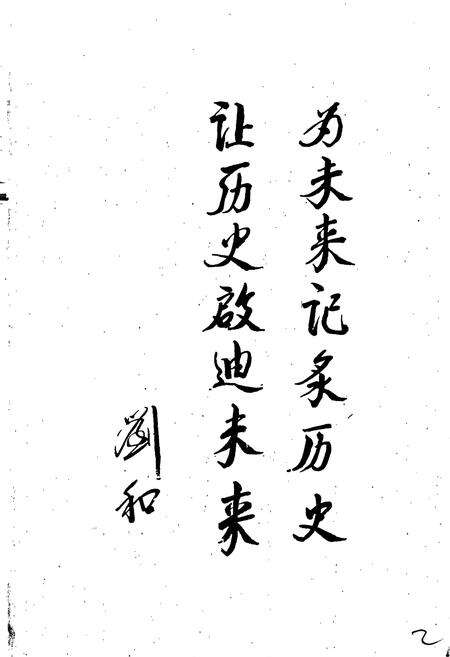 为未来记录历史
让历史启迪未来
劉和